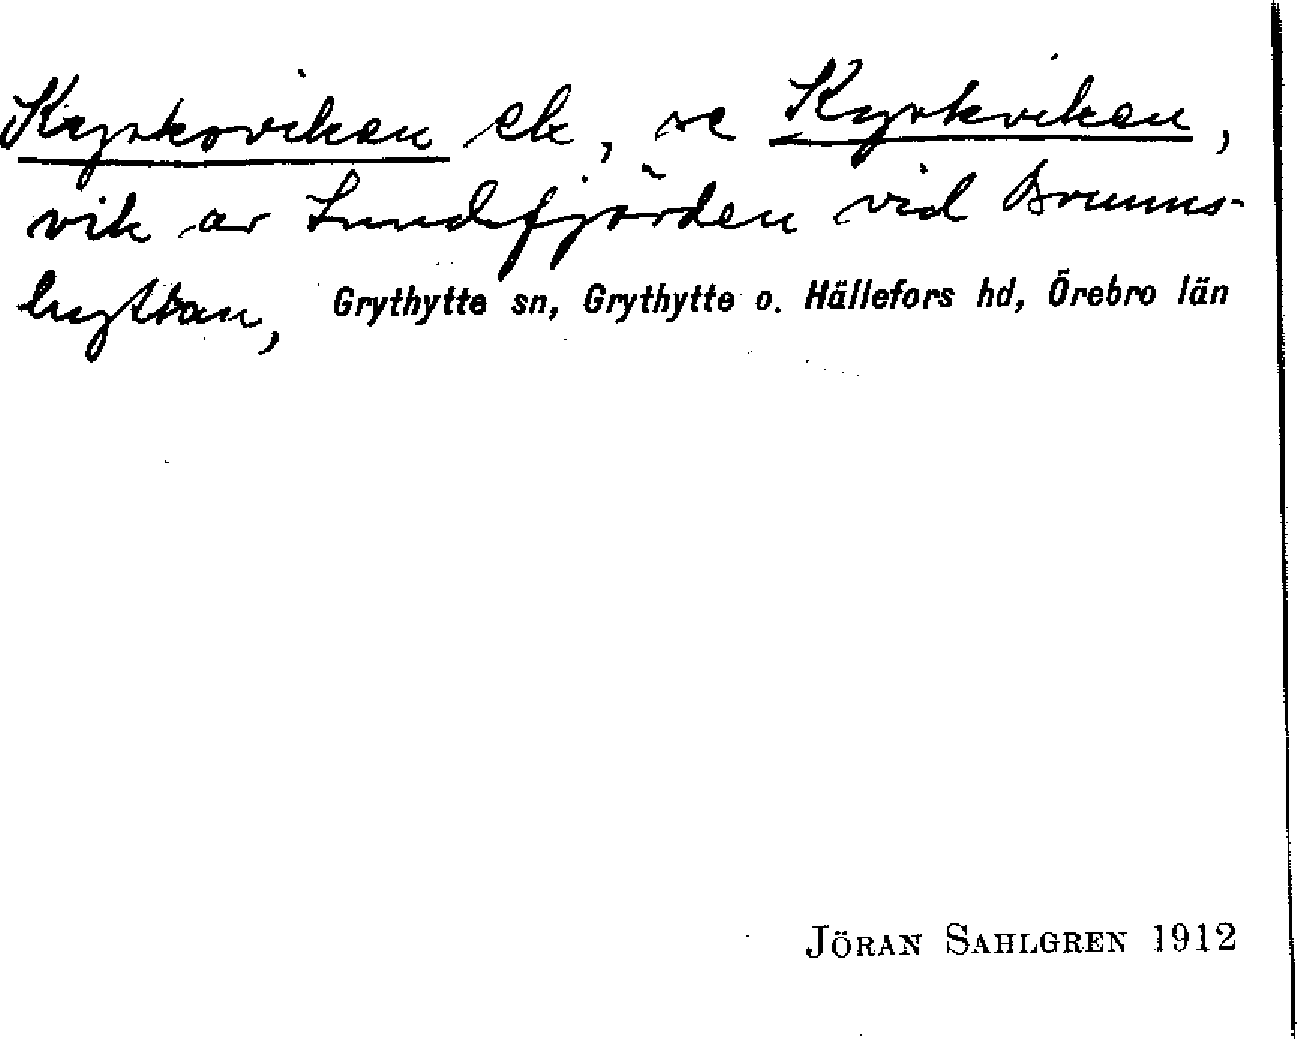 Kyrkoviken ek, se Kyrkviken,
vik av Sundfjärden vid Brunns-
hyttan, Grythytte sn, Grythytte o. Hällefors hd, Örebro län
JÖRAN SAHLGREN 1912